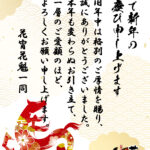 て新年の
慶び申し上げます
旧年中は格別のご厚情を賜り、
誠にありがとうございました。
本年も変わらぬお引き立て、
一層のご愛顧のほど、
よろしくお願い申し上げます
花宵花魁一同